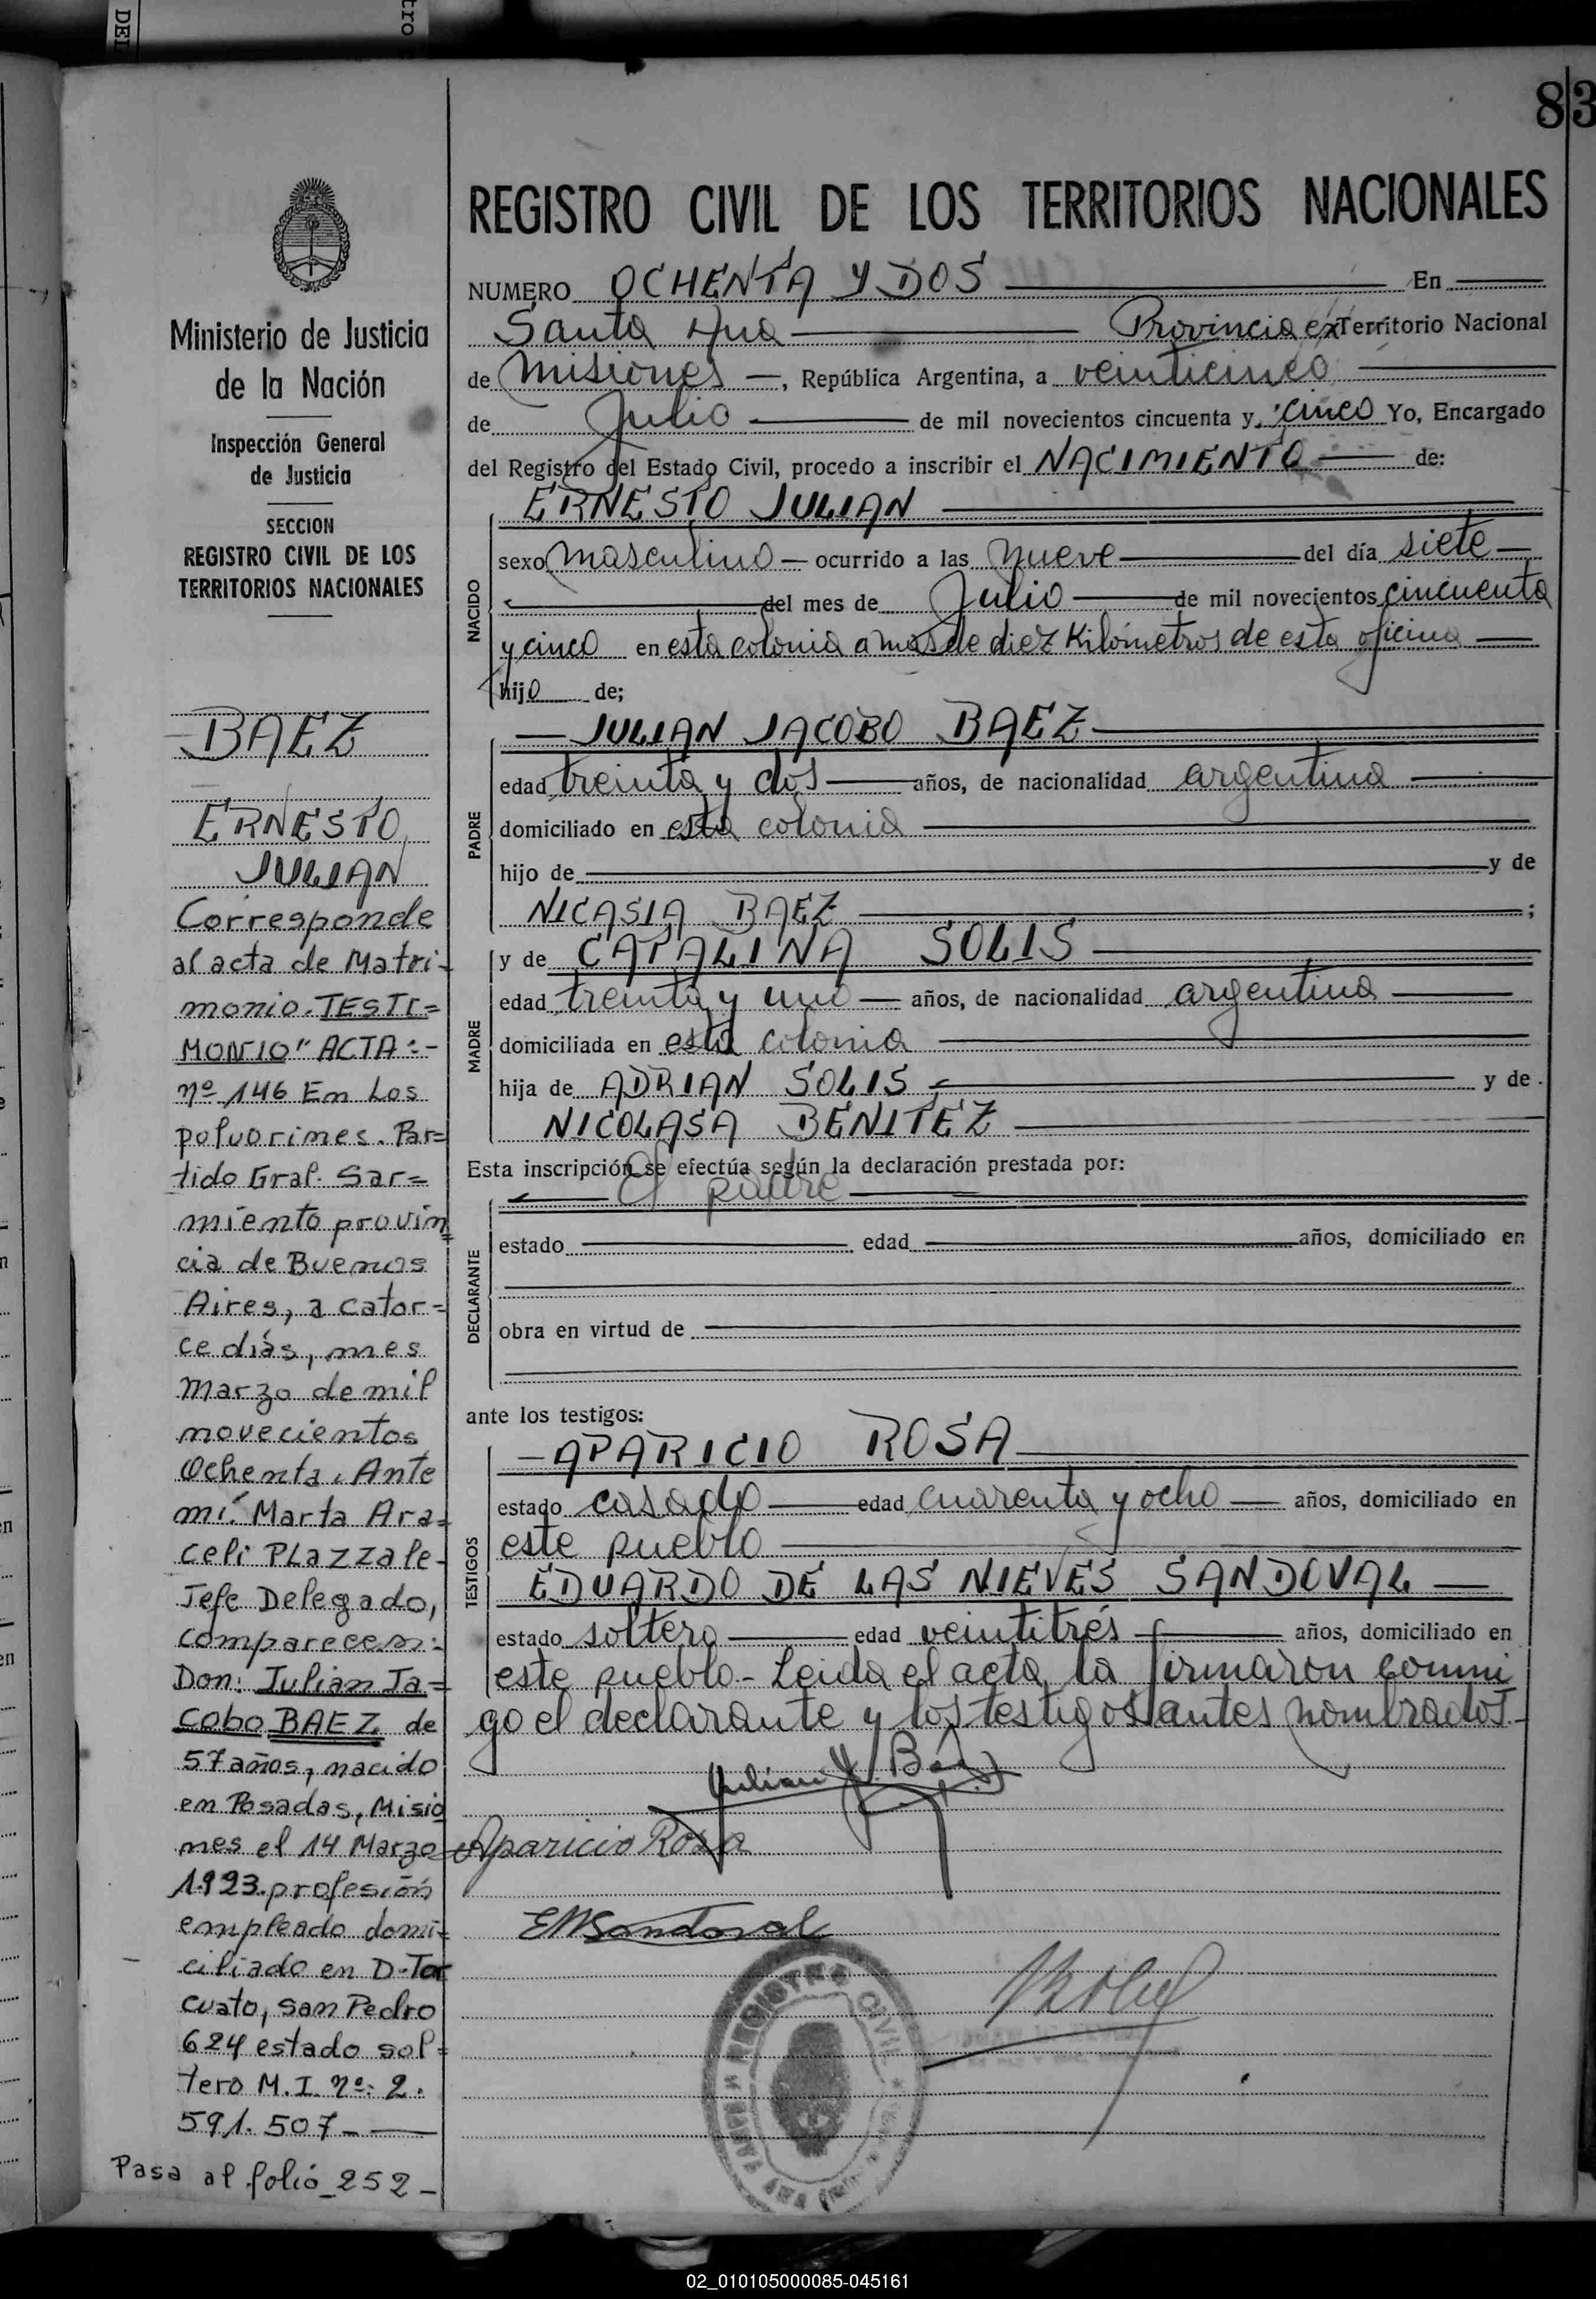 DEL
tro
83
Ministerio de Justicia
de la Nación
Inspección General
de Justicia
SECCION
REGISTRO CIVIL DE LOS
TERRITORIOS NACIONALES
BAEZ
ERNESTO
JULIAN
Corresponde
al acta de Matri-
monio. TESTI=
MONIO" ACTA:-
nº 146 Em Los
polvorines. Par=
tido Gral. Sar=
miento provin=
cia de Buenos
Aires, a cator=
ce diás, mes
Marzo de mil
novecientos
Ochenta. Ante
mí: Marta Ara=
celi PLazzale-
Jefe Delegado,
comparecen:
Don: Julian Ja=
cobo BAEZ de
57 años, nacido
en Posadas, Misio
nes el 14 Marzo
1.923. profesión
empleado domi=
ciliado en D-Tor
cuato, San Pedro
624 estado sol=
tero M.I. nº: 2.
591.507-
Pasa al folió_252-
REGISTRO CIVIL DE LOS TERRITORIOS NACIONALES
NUMERO OCHENTA Y DOS En
Santa Ana Provincia ex Territorio Nacional
de Misiones, República Argentina, a veinticinco
de Julio de mil novecientos cincuenta y cinco Yo, Encargado
del Registro del Estado Civil, procedo a inscribir el NACIMIENTO de:
ERNESTO JULIAN
NACIDO
sexo masculino ocurrido a las nueve del día siete
del mes de Julio de mil novecientos cincuenta
y cinco en esta colonia a mas de diez Kilómetros de esta oficina
hijo de;
JULIAN JACOBO BAEZ
PADRE
edad treinta y dos años, de nacionalidad argentina
domiciliado en esta colonia
hijo de y de
NICASIA BAEZ ;
y de CATALINA SOLIS
MADRE
edad treinta y uno años, de nacionalidad argentina
domiciliada en esta colonia
hija de ADRIAN SOLIS y de
NICOLASA BENITEZ
Esta inscripción se efectúa según la declaración prestada por:
El padre
DECLARANTE
estado edad años, domiciliado en
obra en virtud de
ante los testigos:
APARICIO ROSA
TESTIGOS
estado casado edad cuarenta y ocho años, domiciliado en
este pueblo
EDUARDO DE LAS NIEVES SANDOVAL
estado soltero edad veintitrés años, domiciliado en
este pueblo.- Leida el acta, la firmaron conmi
go el declarante y los testigos antes nombrados.-
Julian J. Báez
Aparicio Rosa
ENSandoval
REGISTRO CIVIL
02_010105000085-045161